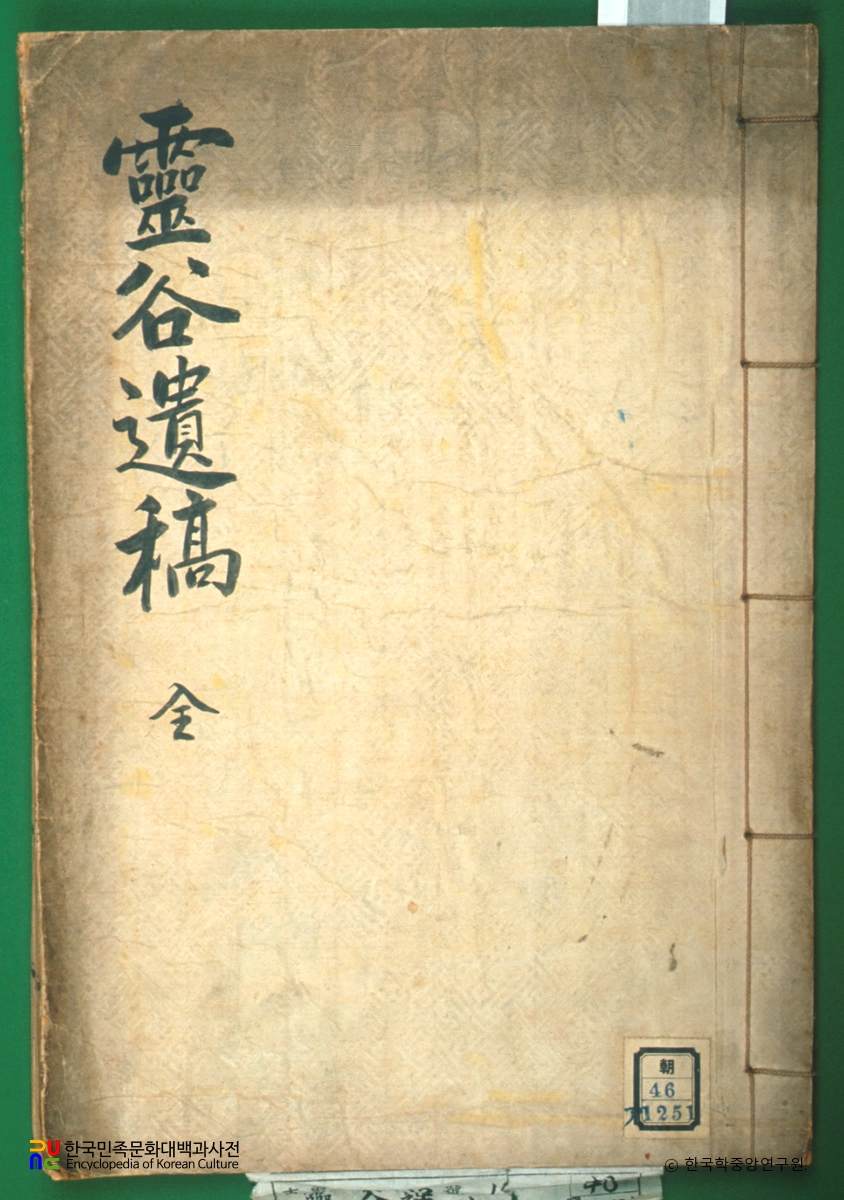 靈谷遺稿 全
朝
46
1251
한국민족문화대백과사전
Encyclopedia of Korean Culture
© 한국학중앙연구원